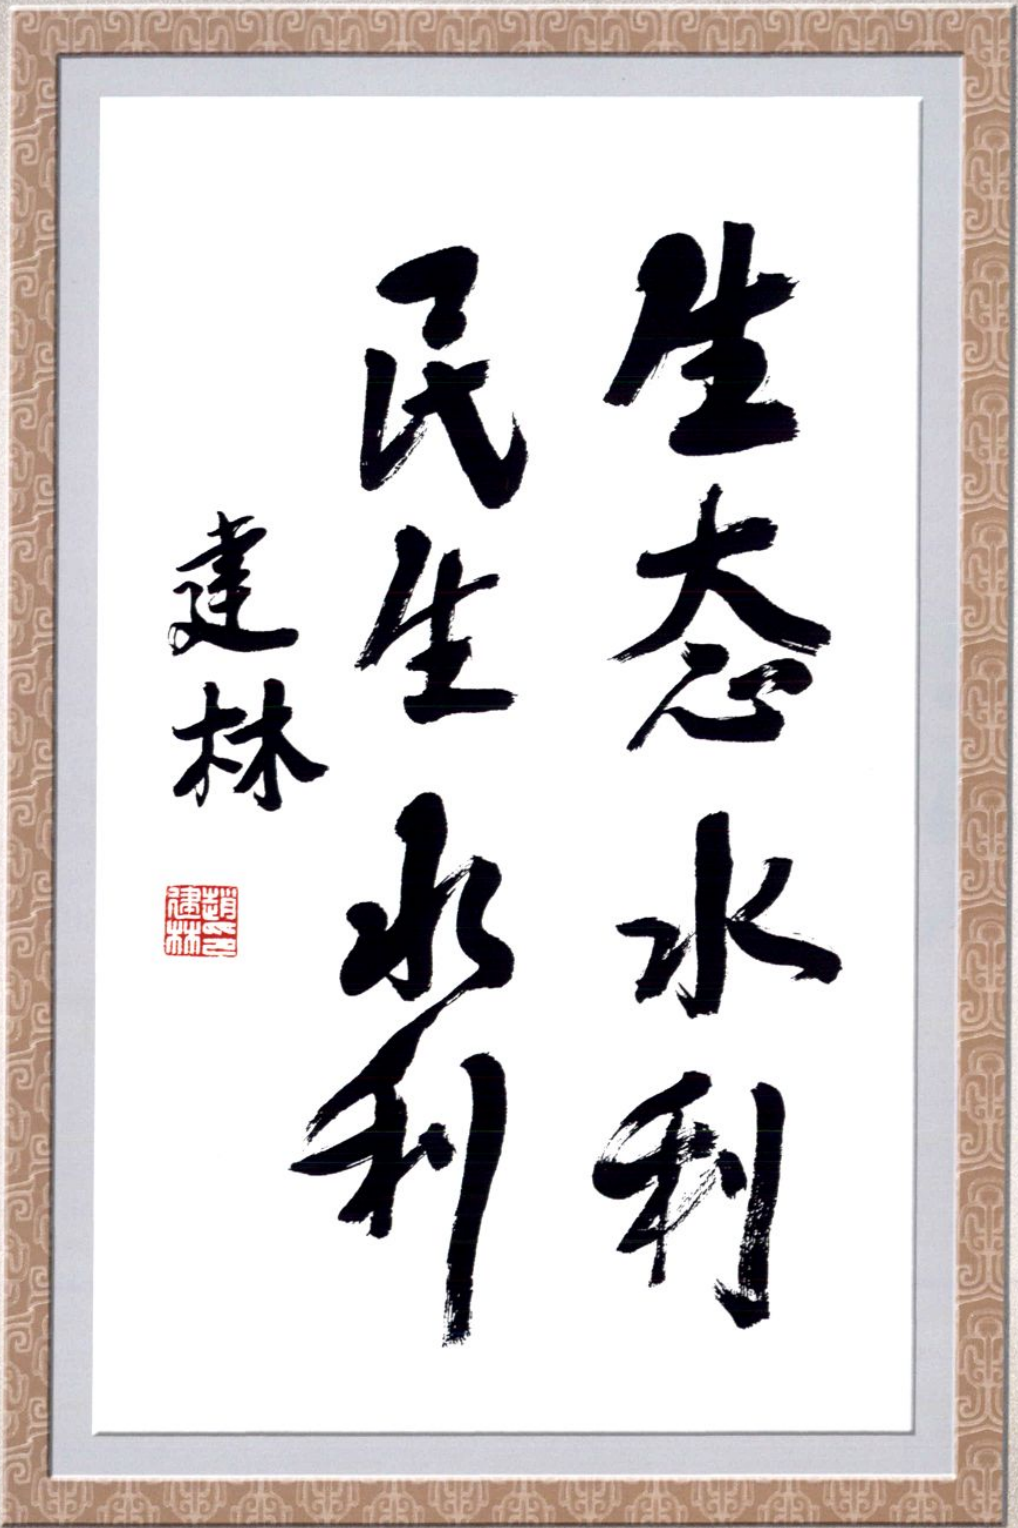 生态水利
民生水利
建林
趙建林印